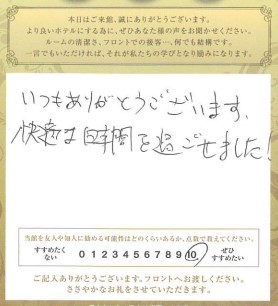 本日はご来館、誠にありがとうございます。
より良いホテルにする為に、ぜひあなた様の声をお聞かせください。
ルームの清潔さ、フロントでの接客…、何でも結構です。
一言でもいただければ、それが私たちの学びとなり励みになります。
いつもありがとうございます、
快適な時間を過ごせました!
当館を友人や知人に勧める可能性はどのくらいあるか、点数で教えてください。
すすめたくない 0 1 2 3 4 5 6 7 8 9 10 ぜひすすめたい
ご記入ありがとうございます。フロントへお渡しください。
ささやかなお礼をさせていただきます。